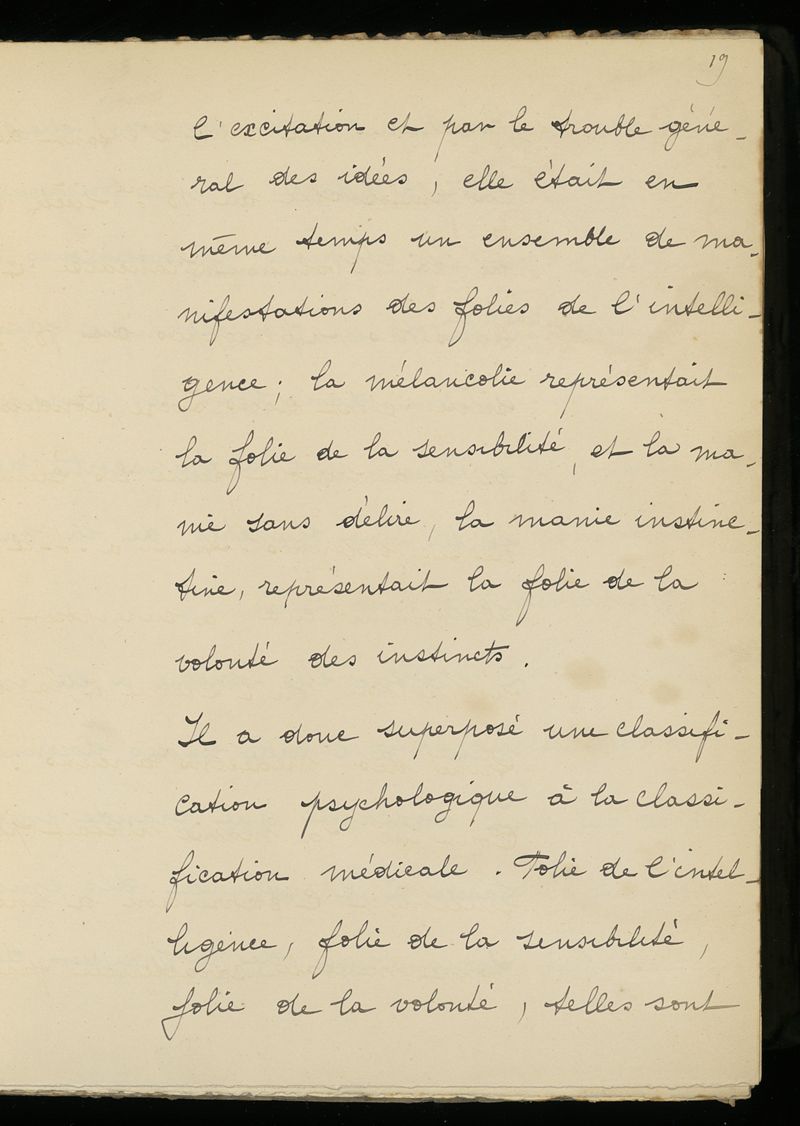 19
l'excitation et par le trouble géné-
ral des idées, elle était en
même temps un ensemble de ma-
nifestations des folies de l'intelli-
gence; la mélancolie représentait
la folie de la sensibilité, et la ma-
nie sans délire, la manie instinc-
tive, représentait la folie de la
volonté des instincts.
Il a donc superposé une classifi-
cation psychologique à la classi-
fication médicale. Folie de l'intel-
ligence, folie de la sensibilité,
folie de la volonté, telles sont